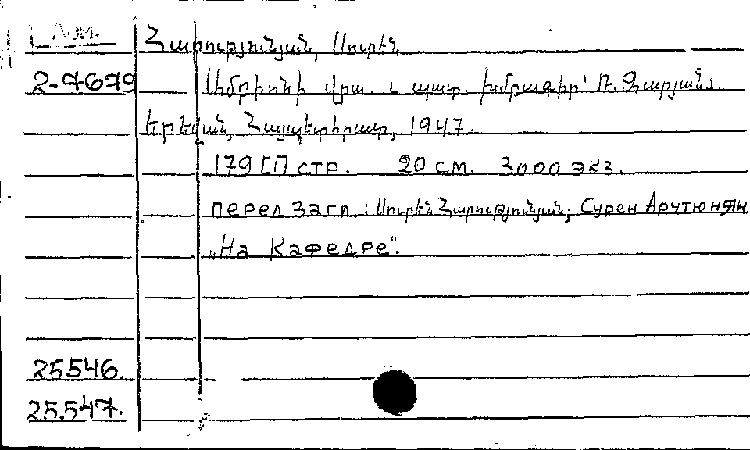 Հարությունյան, Սուրեն
2-7679 Ամբիոնի վրա. և պատ. խմբագիր՝ Ռ. Զարյան.
Երևան, Հայպետհրատ, 1947.
179 [1] стр. 20 см. 3000 экз.
перел загл: Սուրեն Հարությունյան; Сурен Арутюнян
„На Кафедре".
25546.
25.547.